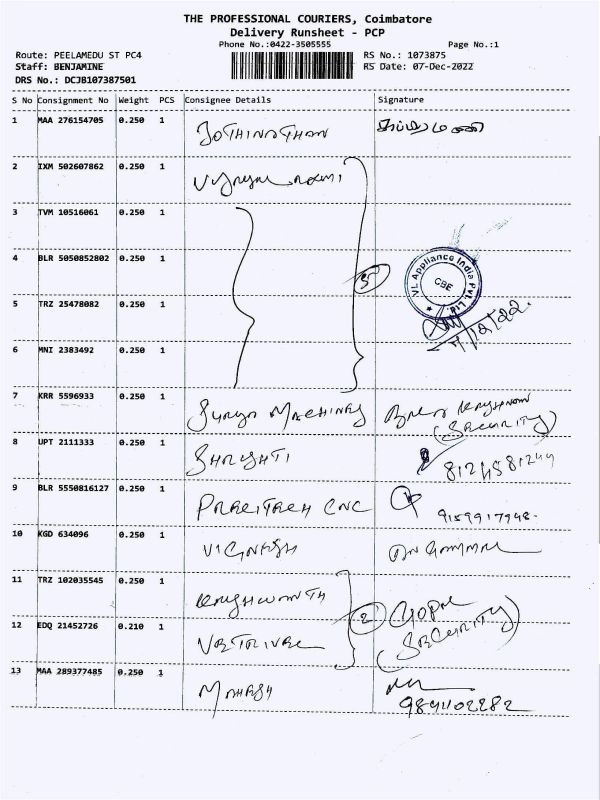 THE PROFESSIONAL COURIERS, Coimbatore
Delivery Runsheet - PCP
Phone No.:0422-3505555
Page No.:1
Route: PEELAMEDU ST PC4
RS No.: 1073875
Staff: BENJAMINE
RS Date: 07-Dec-2022
DRS No.: DCJB107387501
S No Consignment No Weight PCS Consignee Details Signature
1 MAA 276154705 0.250 1 JOTHINATHAN
2 IXM 502607862 0.250 1
3 TVM 10516061 0.250 1
4 BLR 5050852802 0.250 1
5 VL Appliance India Pvt. Ltd. CBE
5 TRZ 25478082 0.250 1
7/12/22.
6 MNI 2383492 0.250 1
7 KRR 5596933 0.250 1 Surya MACHINES
(SECURITY)
8 UPT 2111333 0.250 1 SHRISHTI
9 BLR 5550816127 0.250 1 CNC 9159917948.
10 KGD 634096 0.250 1 VIGNESH
11 TRZ 102035545 0.250 1
2 GOPAL
12 EDQ 21452726 0.210 1 VETRIVEL (SECURITY)
13 MAA 289377485 0.250 1 MAHESH
9894102282